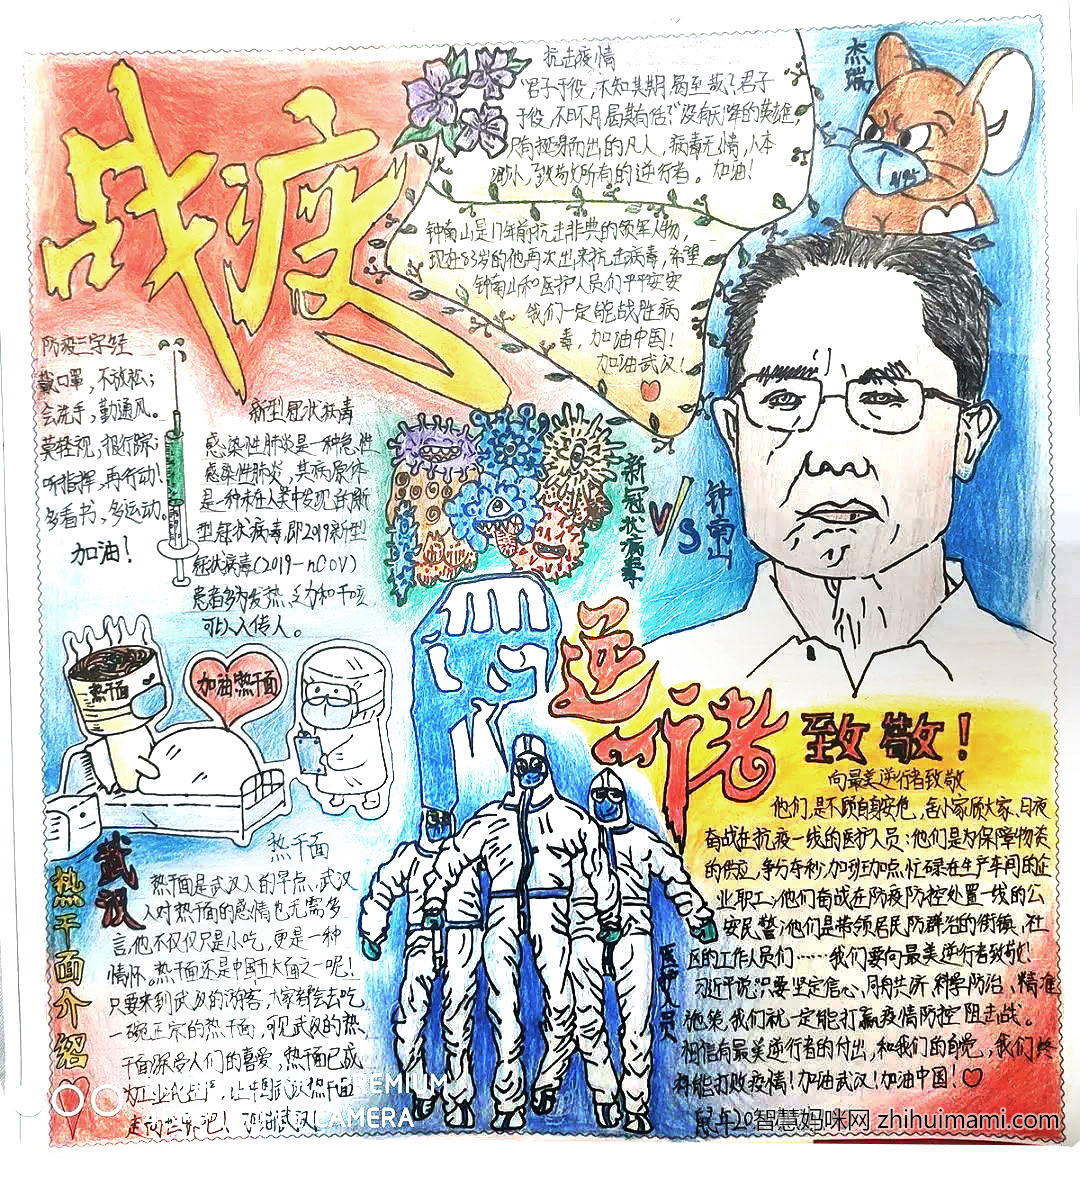 战疫
抗击疫情
“君子于役,不知其期,曷至哉?君子
于役,不日不月,曷其有佸?”没有天降的英雄,
只有挺身而出的凡人,病毒无情,人本
渺小,致敬所有的逆行者。加油!
杰瑞
N95
钟南山是17年前抗击非典的领军人物,
现在83岁的他再次出来抗击病毒,希望
钟南山和医护人员们平平安安
我们一定能战胜病
毒,加油中国!
加油武汉!
防疫三字经
戴口罩,不放松;
会洗手,勤通风。
莫轻视,报行踪;
听指挥,再行动!
多看书,多运动。
加油!
新型冠状病毒
感染性肺炎是一种急性
感染性肺炎,其病原体
是一种未在人类中发现的新
型冠状病毒,即2019新型
冠状病毒(2019-nCOV)
患者多为发热、乏力和干咳
可以人传人。
新冠状病毒
VS
钟南山
热干面
加油热干面
逆行者
致敬!
向最美逆行者致敬
他们,是不顾自身安危,舍小家顾大家、日夜
奋战在抗疫一线的医护人员;他们是为保障物资
的供应,争分夺秒,加班加点,忙碌在生产车间的企
业职工;他们奋战在防疫防控处置一线的公
安民警;他们是带领居民防群治的街镇、社
区的工作人员们……我们要向最美逆行者致敬!
习近平说:“只要坚定信心、同舟共济、科学防治、精准
施策,我们就一定能打赢疫情防控阻击战。
相信有最美逆行者的付出,和我们的自觉,我们终
将能打败疫情!加油武汉!加油中国!
鼠年20
医护人员
武汉
热干面介绍
热干面
热干面是武汉人的早点,武汉
人对热干面的感情也无需多
言,他不仅仅只是小吃,更是一种
情怀。热干面还是中国五大面之一呢!
只要来到武汉的游客,大家都会去吃
一碗正宗的热干面,可见武汉的热
干面深受人们的喜爱,热干面已成
为工业化生产,让中国武汉热干面
走向世界吧!加油武汉!
PREMIUM
CAMERA
智慧妈咪网 zhihuimami.com